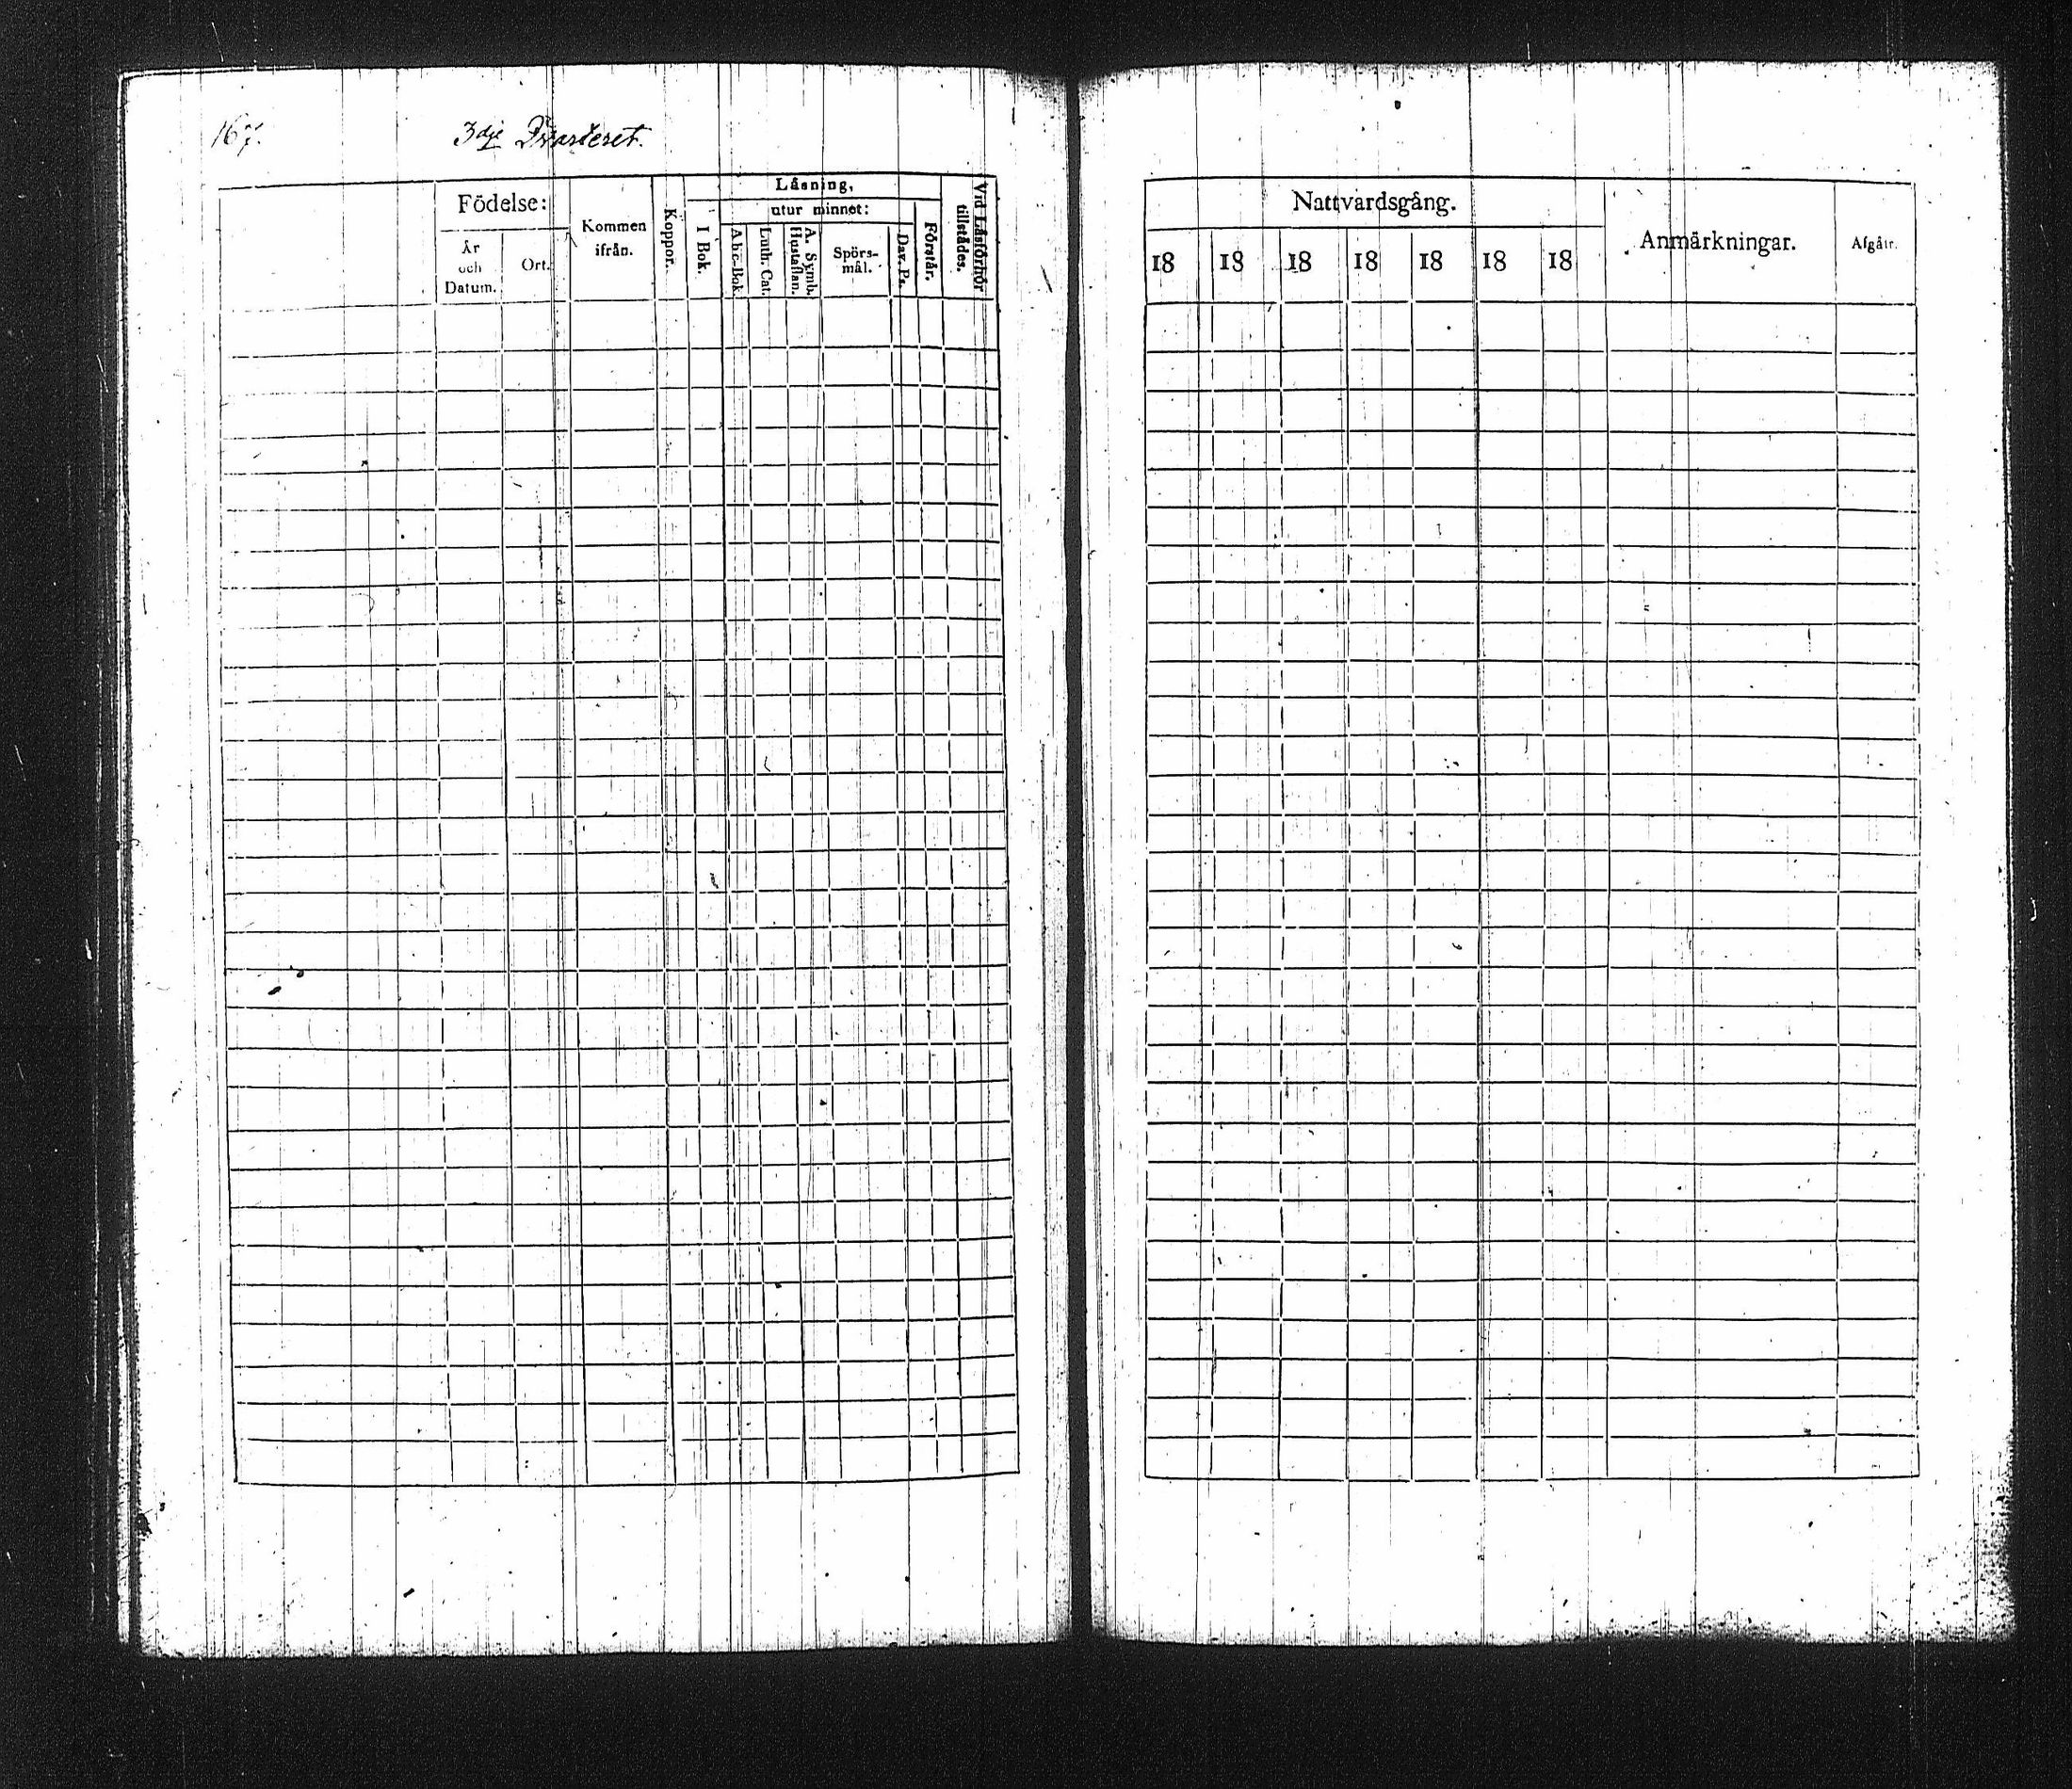 167. 3dje Qvarteret.
Födelse:
År
och
Datum.
Ort.
Kommen
ifrån.
Koppor.
Läsning,
I Bok.
utur minnet:
Abc-Bok.
Luth. Cat.
A. Symb.
Hustaflan.
Spörs-
mål.
Dav. Ps.
Förstår.
Vid Läsförhör
tillstädes.
Nattvardsgång.
18 18 18 18 18 18 18
Anmärkningar.
Afgått.